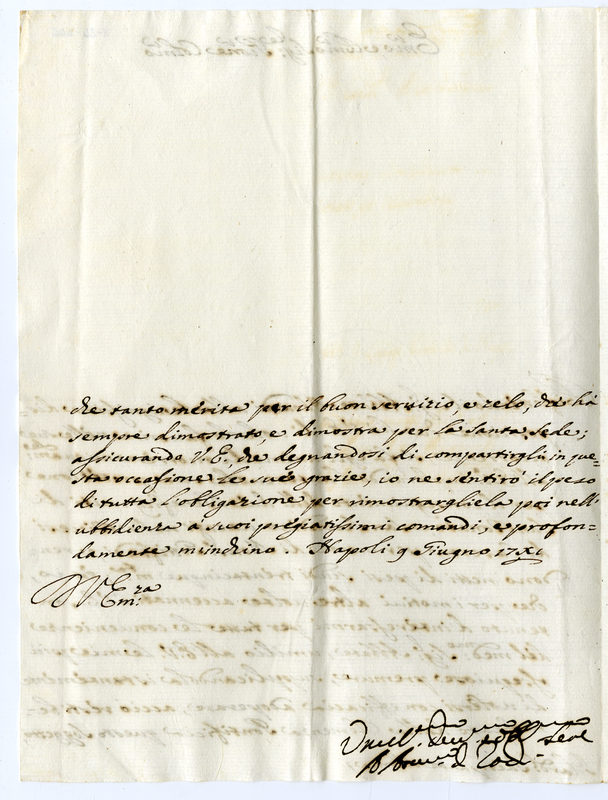 che tanto merita per il buon servizio, e zelo, che hà
sempre dimostrato, e dimostra per la Santa Sede;
assicurando V. E., che degnandosi di compartirgli in que=
sta occassione le sue grazie, io ne sentirò il peso
di tutta l'obligazione per rimostrargliela poi nell'
ubbidienza à suoi pregiatissimi comandi, e profon=
damente m'inchino. Napoli 9 Giugno
D V Em.za